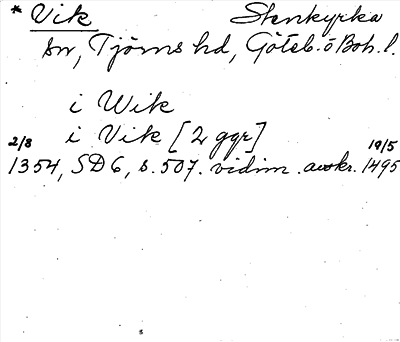 * Vik Stenkyrka
sn, Tjörns hd, Göteb. o Boh. l.
i Wik
i Vik [2 ggr]
2/8 19/5
1354, SD 6, s. 507. vidim. avskr. 1495